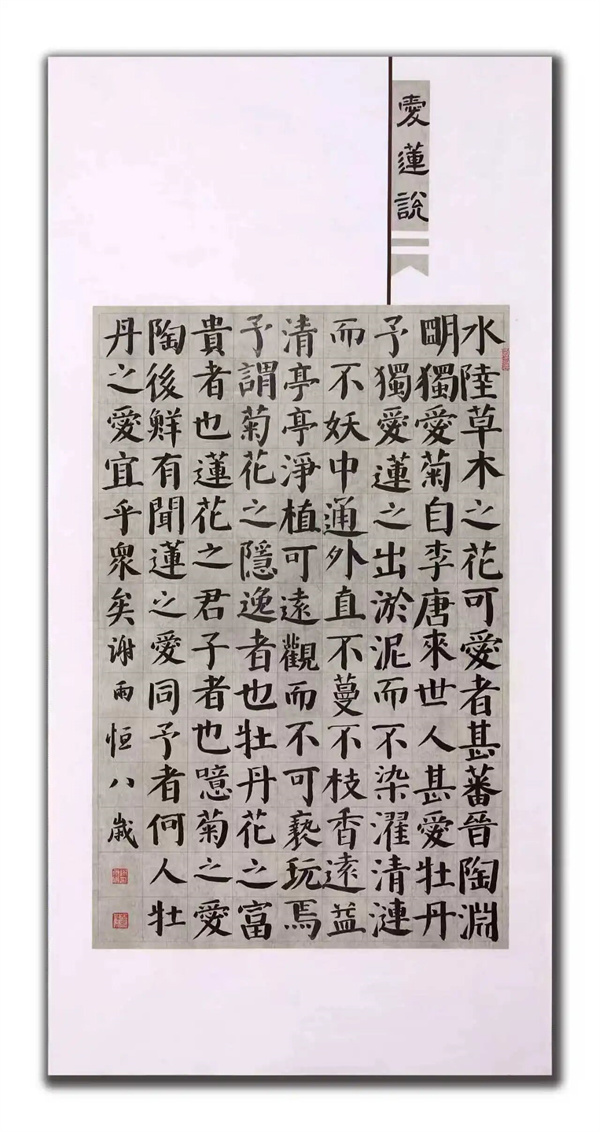 愛蓮說
水陸草木之花可愛者甚蕃晉陶淵
明獨愛菊自李唐來世人甚愛牡丹
予獨愛蓮之出淤泥而不染濯清漣
而不妖中通外直不蔓不枝香遠益
清亭亭淨植可遠觀而不可褻玩焉
予謂菊花之隱逸者也牡丹花之富
貴者也蓮花之君子者也噫菊之愛
陶後鮮有聞蓮之愛同予者何人牡
丹之愛宜乎衆矣謝雨恒八歲